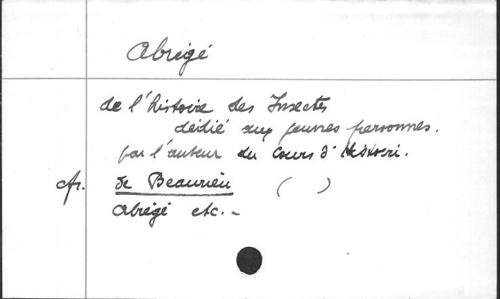 Abrégé
de l'histoire des Insectes
dédié aux jeunes personnes.
par l'auteur du Cours d'
cfr. de Beaurieu ( )
Abrégé etc.-